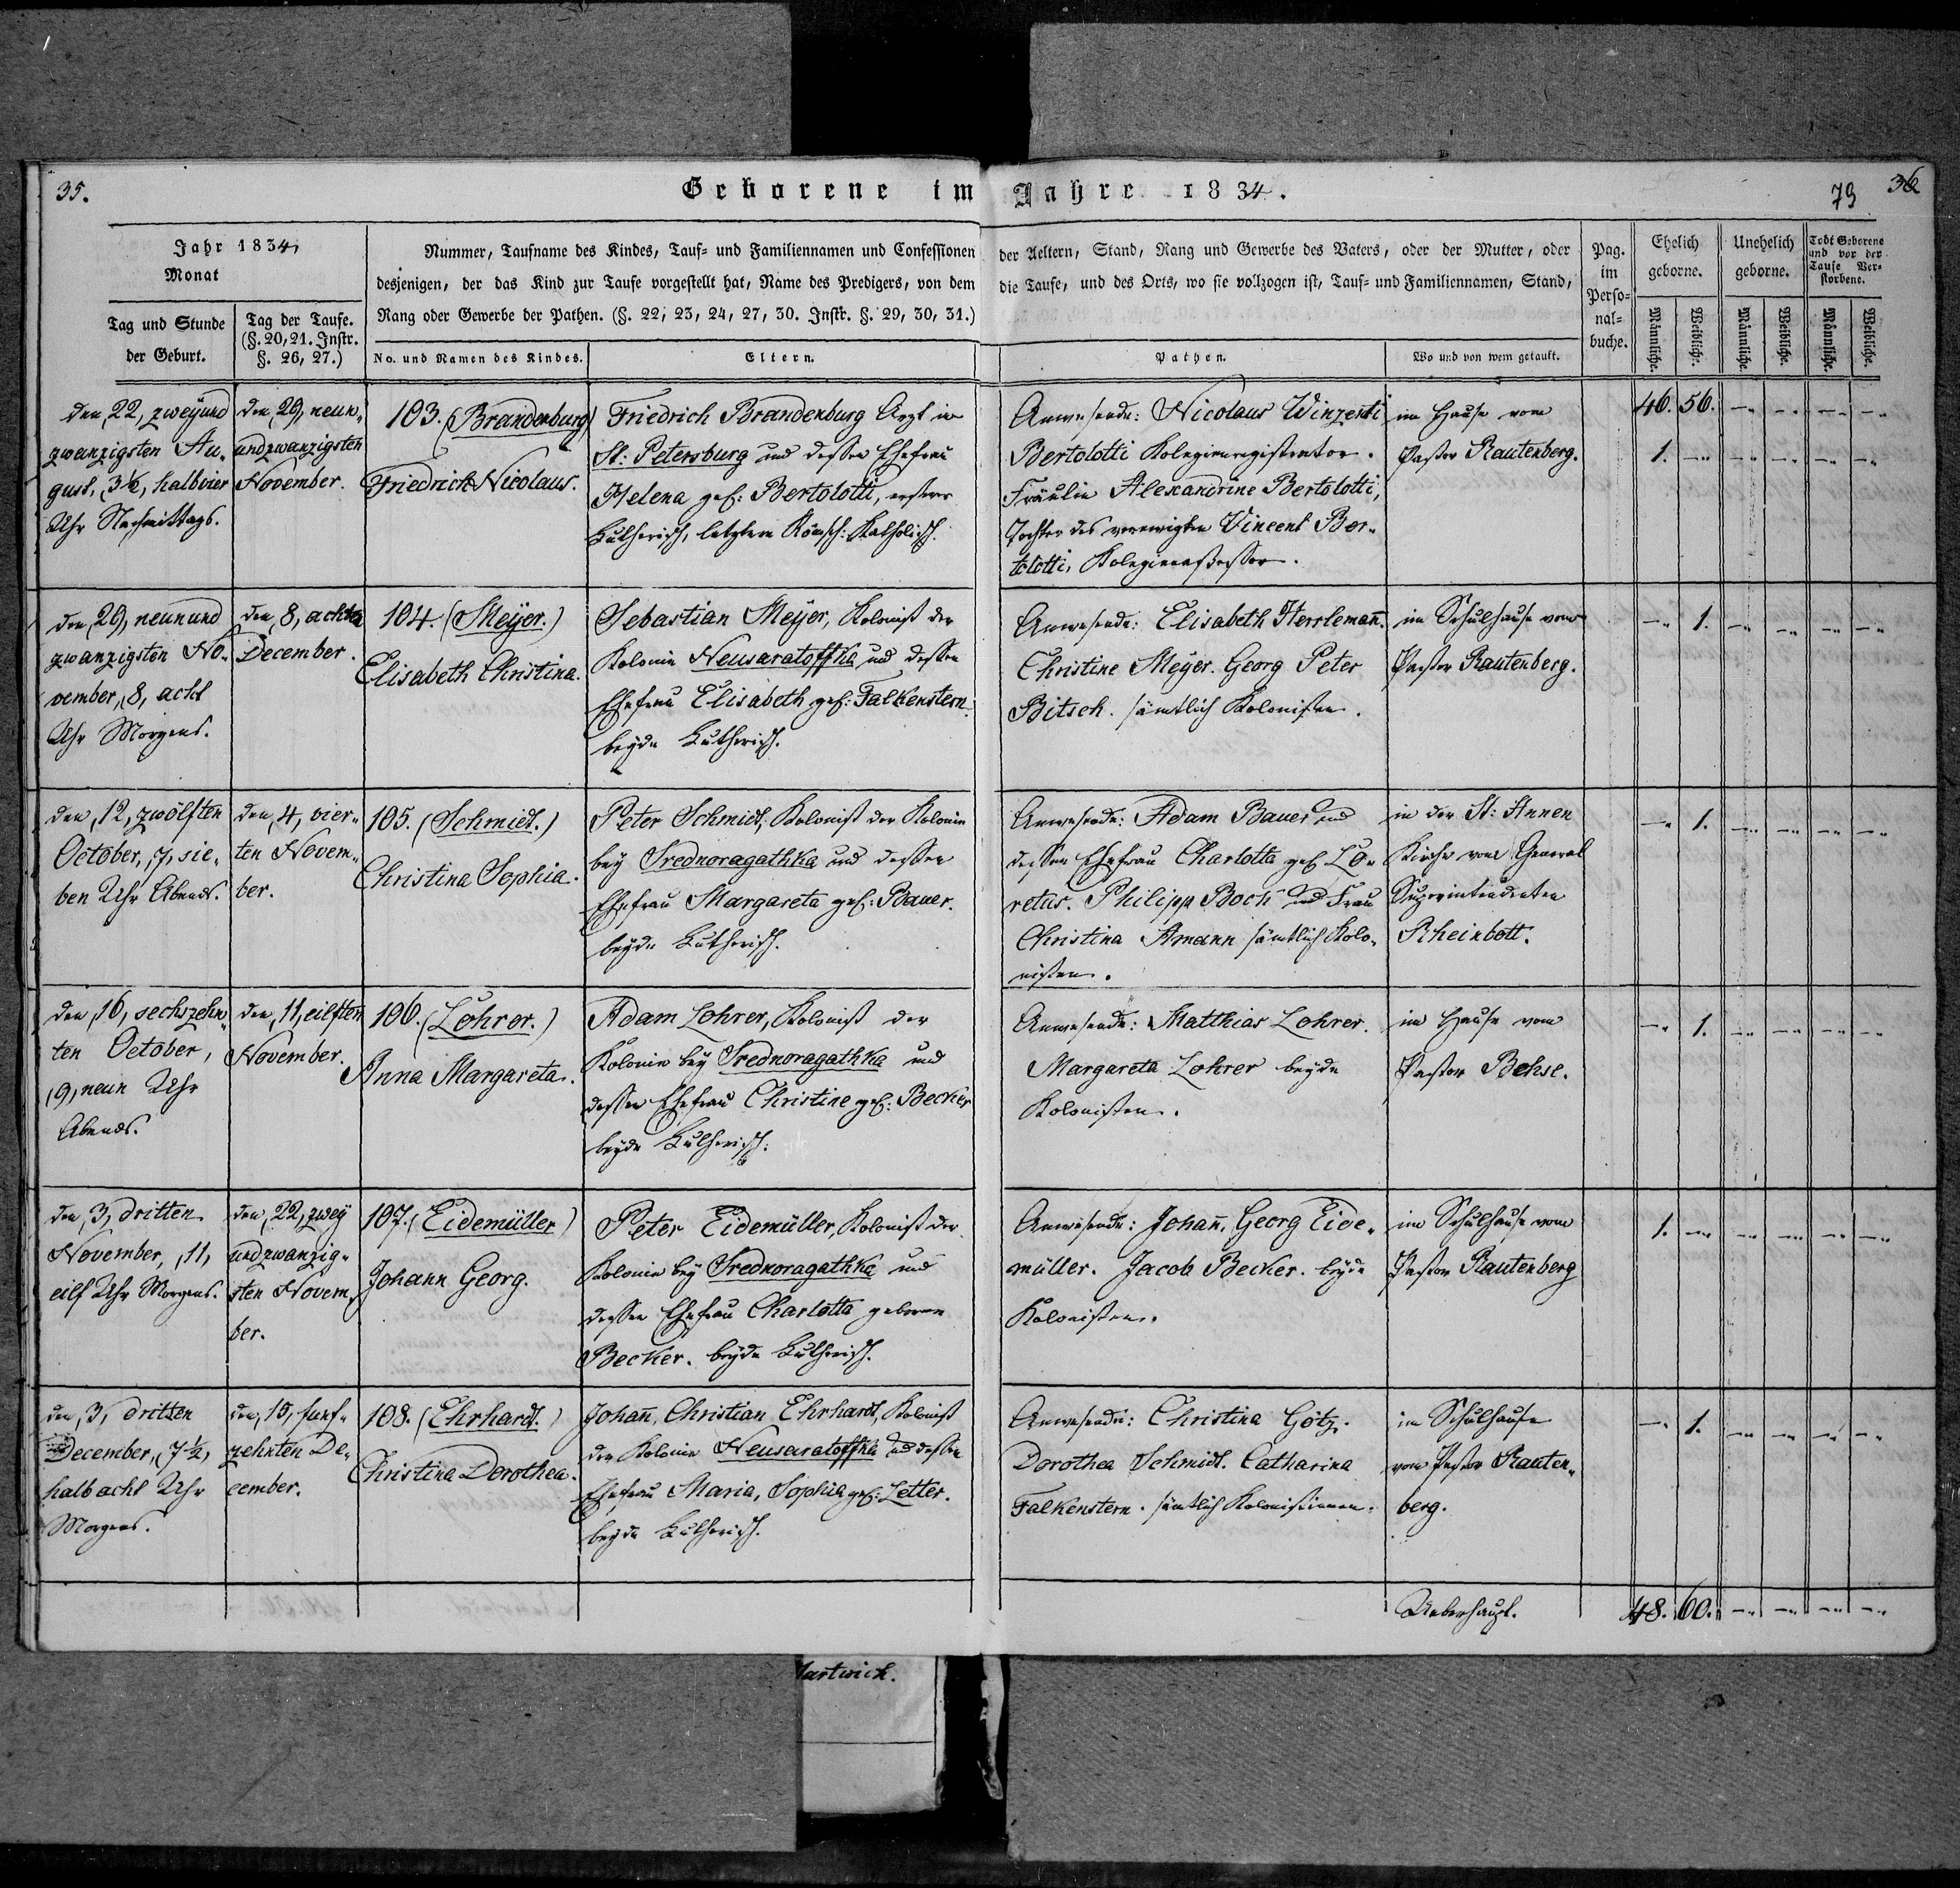 35.
Geborene im Jahre 1834.
79
36
Jahr 1834,
Monat
Tag und Stunde
der Geburt.
Tag der Taufe.
(§. 20, 21. Instr.
§. 26, 27.)
Nummer, Taufname des Kindes, Tauf- und Familiennamen und Confessionen der Aeltern, Stand, Rang und Gewerbe des Vaters, oder der Mutter, oder
desjenigen, der das Kind zur Taufe vorgestellt hat, Name des Predigers, von dem die Taufe, und des Orts, wo sie vollzogen ist, Tauf- und Familiennamen, Stand,
Rang oder Gewerbe der Pathen. (§. 22, 23, 24, 27, 30. Instr. §. 29, 30, 31.)
No. und Namen des Kindes.
Eltern.
Pathen.
Wo und von wem getauft.
Pag.
im
Perso-
nal-
buche.
Ehelich
geborne.
Unehelich
geborne.
Todt Geborene
und vor der
Taufe Ver-
storbene.
Männliche.
Weibliche.
Männliche.
Weibliche.
Männliche.
Weibliche.
den, 22, zweyund
zwanzigsten Au-
gust, 3½, halbvier
Uhr Nachmittags.
den, 29, neun-
undzwanzigsten
November.
103. (Brandenburg)
Friedrich Nicolaus.
Friedrich Brandenburg Arzt in
St: Petersburg und dessen Ehefrau
Helena geb: Bertolotti, ersterer
Lutherisch, letztere Römisch: Katholisch.
Anwesende: Nicolaus Winzenti
Bertolotti Kolegienregistrator.
Fräulein Alexandrine Bertolotti,
Tochter des verewigten Vincent Ber-
tolotti, Kolegienassessor.
im Hause vom
Pastor Rautenberg.
46. 56.
1.
den, 29, neunund
zwanzigsten No-
vember, 8, acht
Uhr Morgens.
den, 8, achten
December.
104. (Meyer.)
Elisabeth Christina.
Sebastian Meyer, Kolonist der
Kolonie Neusaratoffka und dessen
Ehefrau Elisabeth geb: Falkenstern.
beyde Lutherisch.
Anwesende: Elisabeth Herrlemañ.
Christine Meyer. Georg Peter
Bitsch. sämtlich Kolonisten.
im Schulhause vom
Pastor Rautenberg.
1.
den, 12, zwölften
October, 7, sie-
ben Uhr Abends.
den, 4, vier-
ten Novem-
ber.
105. (Schmidt.)
Christina Sophia.
Peter Schmidt, Kolonist der Kolonie
bey Srednoragathka und dessen
Ehefrau Margareta geb: Bauer.
beyde Lutherisch.
Anwesende: Adam Bauer und
dessen Ehefrau Charlotta geb Lo-
retus. Philipp Boch und Frau
Christina Amann sämtlich Kolo-
nisten.
in der St: Annen
Kirche vom General
Superintendenten
Rheinbott.
1.
den, 16, sechszehn-
ten October,
, 9, neun Uhr
Abends.
den, 11, eilften
November.
106. (Lohrer.)
Anna Margareta.
Adam Lohrer, Kolonist der
Kolonie bey Srednoragathka und
dessen Ehefrau Christine geb: Becker
beyde Lutherisch.
Anwesende: Matthias Lohrer.
Margareta Lohrer beyde
Kolonisten.
im Hause vom
Pastor Behse.
1.
den, 3, dritten
November, 11,
eilf Uhr Morgens.
den, 22, zwey
undzwanzig-
sten Novem-
ber.
107. (Eidemüller)
Johann Georg.
Peter Eidemüller, Kolonist der
Kolonie bey Srednoragathka und
dessen Ehefrau Charlotta geborene
Becker. beyde Lutherisch.
Anwesende: Johañ, Georg Eide-
müller. Jacob Becker. beyde
Kolonisten.
im Schulhause vom
Pastor Rautenberg
1.
den, 3, dritten
December, 7½,
halb acht Uhr
Morgens.
den, 15, funf-
zehnten De-
cember.
108. (Ehrhardt.)
Christina Dorothea.
Johañ, Christian Ehrhardt, Kolonist
der Kolonie Neusaratoffka und dessen
Ehefrau Maria, Sophia geb: Letter.
beyde Lutherisch.
Anwesende: Christina Götz.
Dorothea Schmidt. Catharina
Falkenstern. sämtlich Kolonistinnen.
im Schulhause
vom Pastor Rauten-
berg.
1.
Ueberhaupt.
48. 60.
Hartwich.